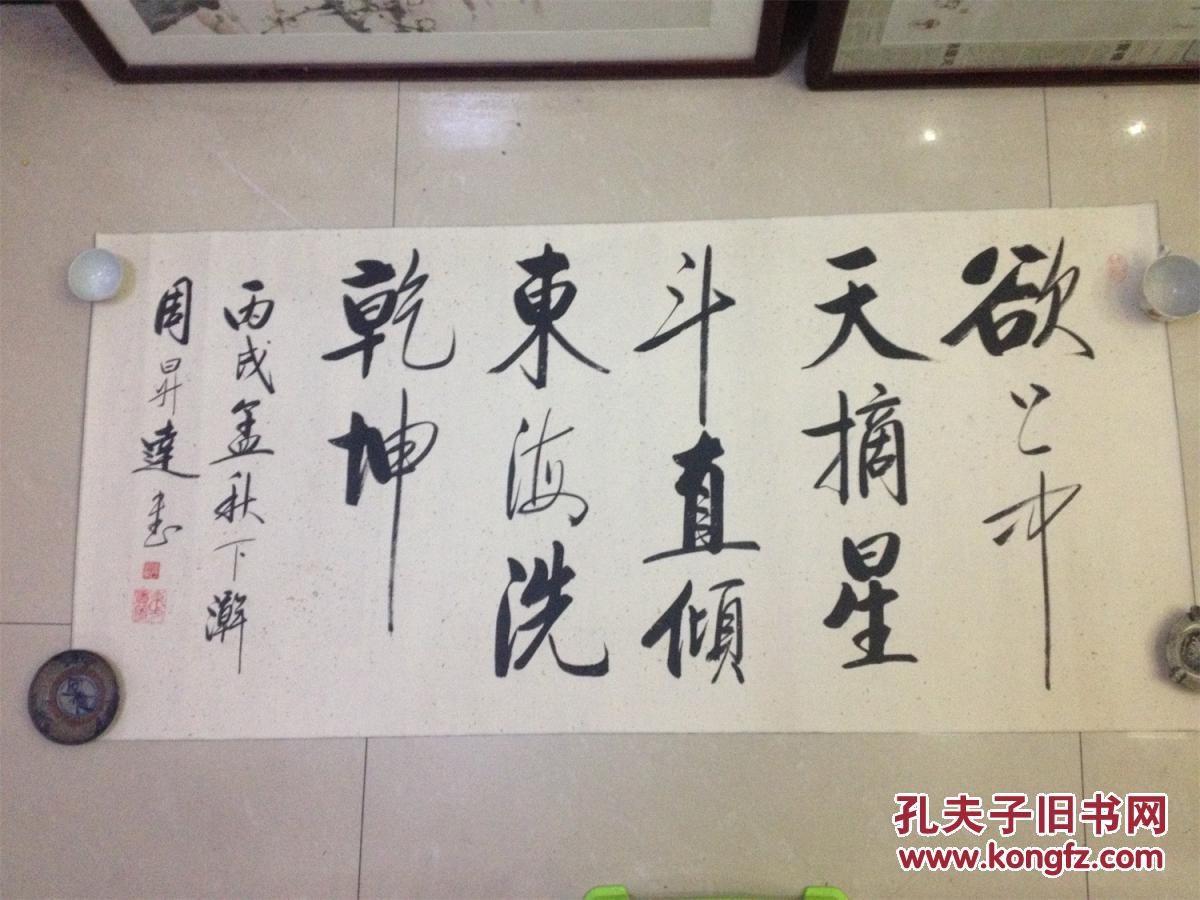 欲上中
天摘星
斗直傾
東海洗
乾坤
丙戌孟秋下澣
周昇達書
孔夫子旧书网
www.kongfz.com